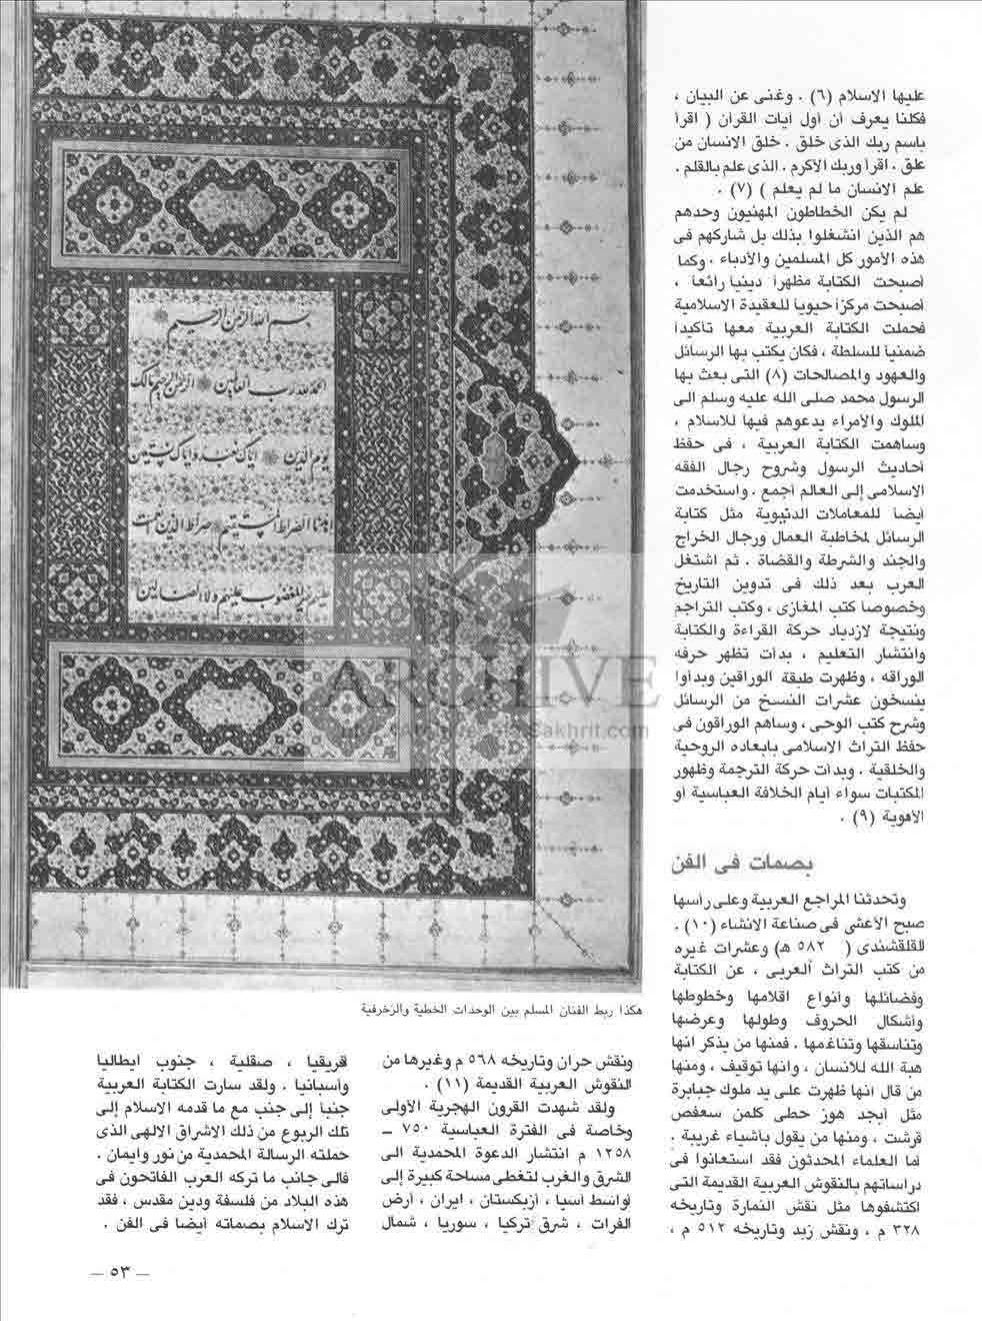 عليها الاسلام (٦) . وغنى عن البيان ،
فكلنا يعرف ان أول آيات القرآن ( اقرأ
باسم ربك الذى خلق . خلق الانسان من
علق . اقرأ وربك الأكرم . الذى علم بالقلم .
علم الانسان ما لم يعلم ) (٧) .
لم يكن الخطاطون المهنيون وحدهم
هم الذين انشغلوا بذلك بل شاركهم فى
هذه الأمور كل المسلمين والأدباء . وكما
أصبحت الكتابة مظهرا دينيا رائعا ،
أصبحت مركزا حيويا للعقيدة الاسلامية
فحملت الكتابة العربية معها تأكيدا
ضمنيا للسلطة ، فكان يكتب بها الرسائل
والعهود والمصالحات (٨) التى بعث بها
الرسول محمد صلى الله عليه وسلم الى
الملوك والأمراء يدعوهم فيها للاسلام ،
وساهمت الكتابة العربية ، فى حفظ
أحاديث الرسول وشروح رجال الفقه
الاسلامى إلى العالم أجمع . واستخدمت
ايضا للمعاملات الدنيوية مثل كتابة
الرسائل لمخاطبة العمال ورجال الخراج
والجند والشرطة والقضاة . ثم اشتغل
العرب بعد ذلك فى تدوين التاريخ
وخصوصا كتب المغازى ، وكتب التراجم
ونتيجة لازدياد حركة القراءة والكتابة
وانتشار التعليم ، بدأت تظهر حرفه
الوراقه ، وظهرت طبقة الوراقين وبدأوا
ينسخون عشرات النسخ من الرسائل
وشرح كتب الوحى ، وساهم الوراقون فى
حفظ التراث الاسلامى بأبعاده الروحية
والخلقية . وبدأت حركة الترجمة وظهور
المكتبات سواء أيام الخلافة العباسية أو
الأموية (٩) .
بصمات فى الفن
وتحدثنا المراجع العربية وعلى رأسها
صبح الأعشى فى صناعة الإنشاء (١٠) .
للقلقشندى ( ٥٨٢ هـ) وعشرات غيره
من كتب التراث العربى ، عن الكتابة
وفضائلها وأنواع اقلامها وخطوطها
وأشكال الحروف وطولها وعرضها
وتناسقها وتناغمها . فمنها من يذكر انها
هبة الله للانسان ، وانها توقيف ، ومنها
من قال انها ظهرت على يد ملوك جبابرة
مثل أبجد هوز حطى كلمن سعفص
قرشت ، ومنها من يقول بأشياء غريبة .
أما العلماء المحدثون فقد استعانوا فى
دراساتهم بالنقوش العربية القديمة التى
اكتشفوها مثل نقش النمارة وتاريخه
٣٢٨ م ، ونقش زبد وتاريخه ٥١٢ م ،
بسم الله الرحمن الرحيم
الحمد لله رب العالمين الرحمن الرحيم مالك
يوم الدين اياك نعبد واياك نستعين
اهدنا الصراط المستقيم صراط الذين انعمت
عليهم غير المغضوب عليهم ولا الضالين
ARCHIVE
Sakhrit.com
هكذا ربط الفنان المسلم بين الوحدات الخطية والزخرفية
ونقش حران وتاريخه ٥٦٨ م وغيرها من
النقوش العربية القديمة (١١) .
ولقد شهدت القرون الهجرية الأولى
وخاصة فى الفترة العباسية ٧٥٠ –
١٢٥٨ م انتشار الدعوة المحمدية الى
الشرق والغرب لتغطى مساحة كبيرة إلى
أواسط آسيا ، أزبكستان ، ايران ، أرض
الفرات ، شرق تركيا ، سوريا ، شمال
قريقيا ، صقلية ، جنوب ايطاليا
وأسبانيا . ولقد سارت الكتابة العربية
جنبا إلى جنب مع ما قدمه الاسلام إلى
تلك الربوع من ذلك الاشراق الالهى الذى
حملته الرسالة المحمدية من نور وايمان .
فالى جانب ما تركه العرب الفاتحون فى
هذه البلاد من فلسفة ودين مقدس ، فقد
ترك الاسلام بصماته أيضا فى الفن .
– ٥٣ –